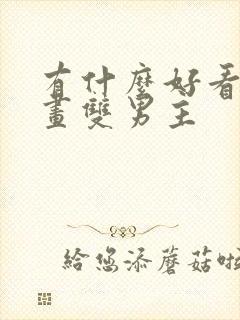 有什麼好看
畫雙男主
給您添蘑菇啦